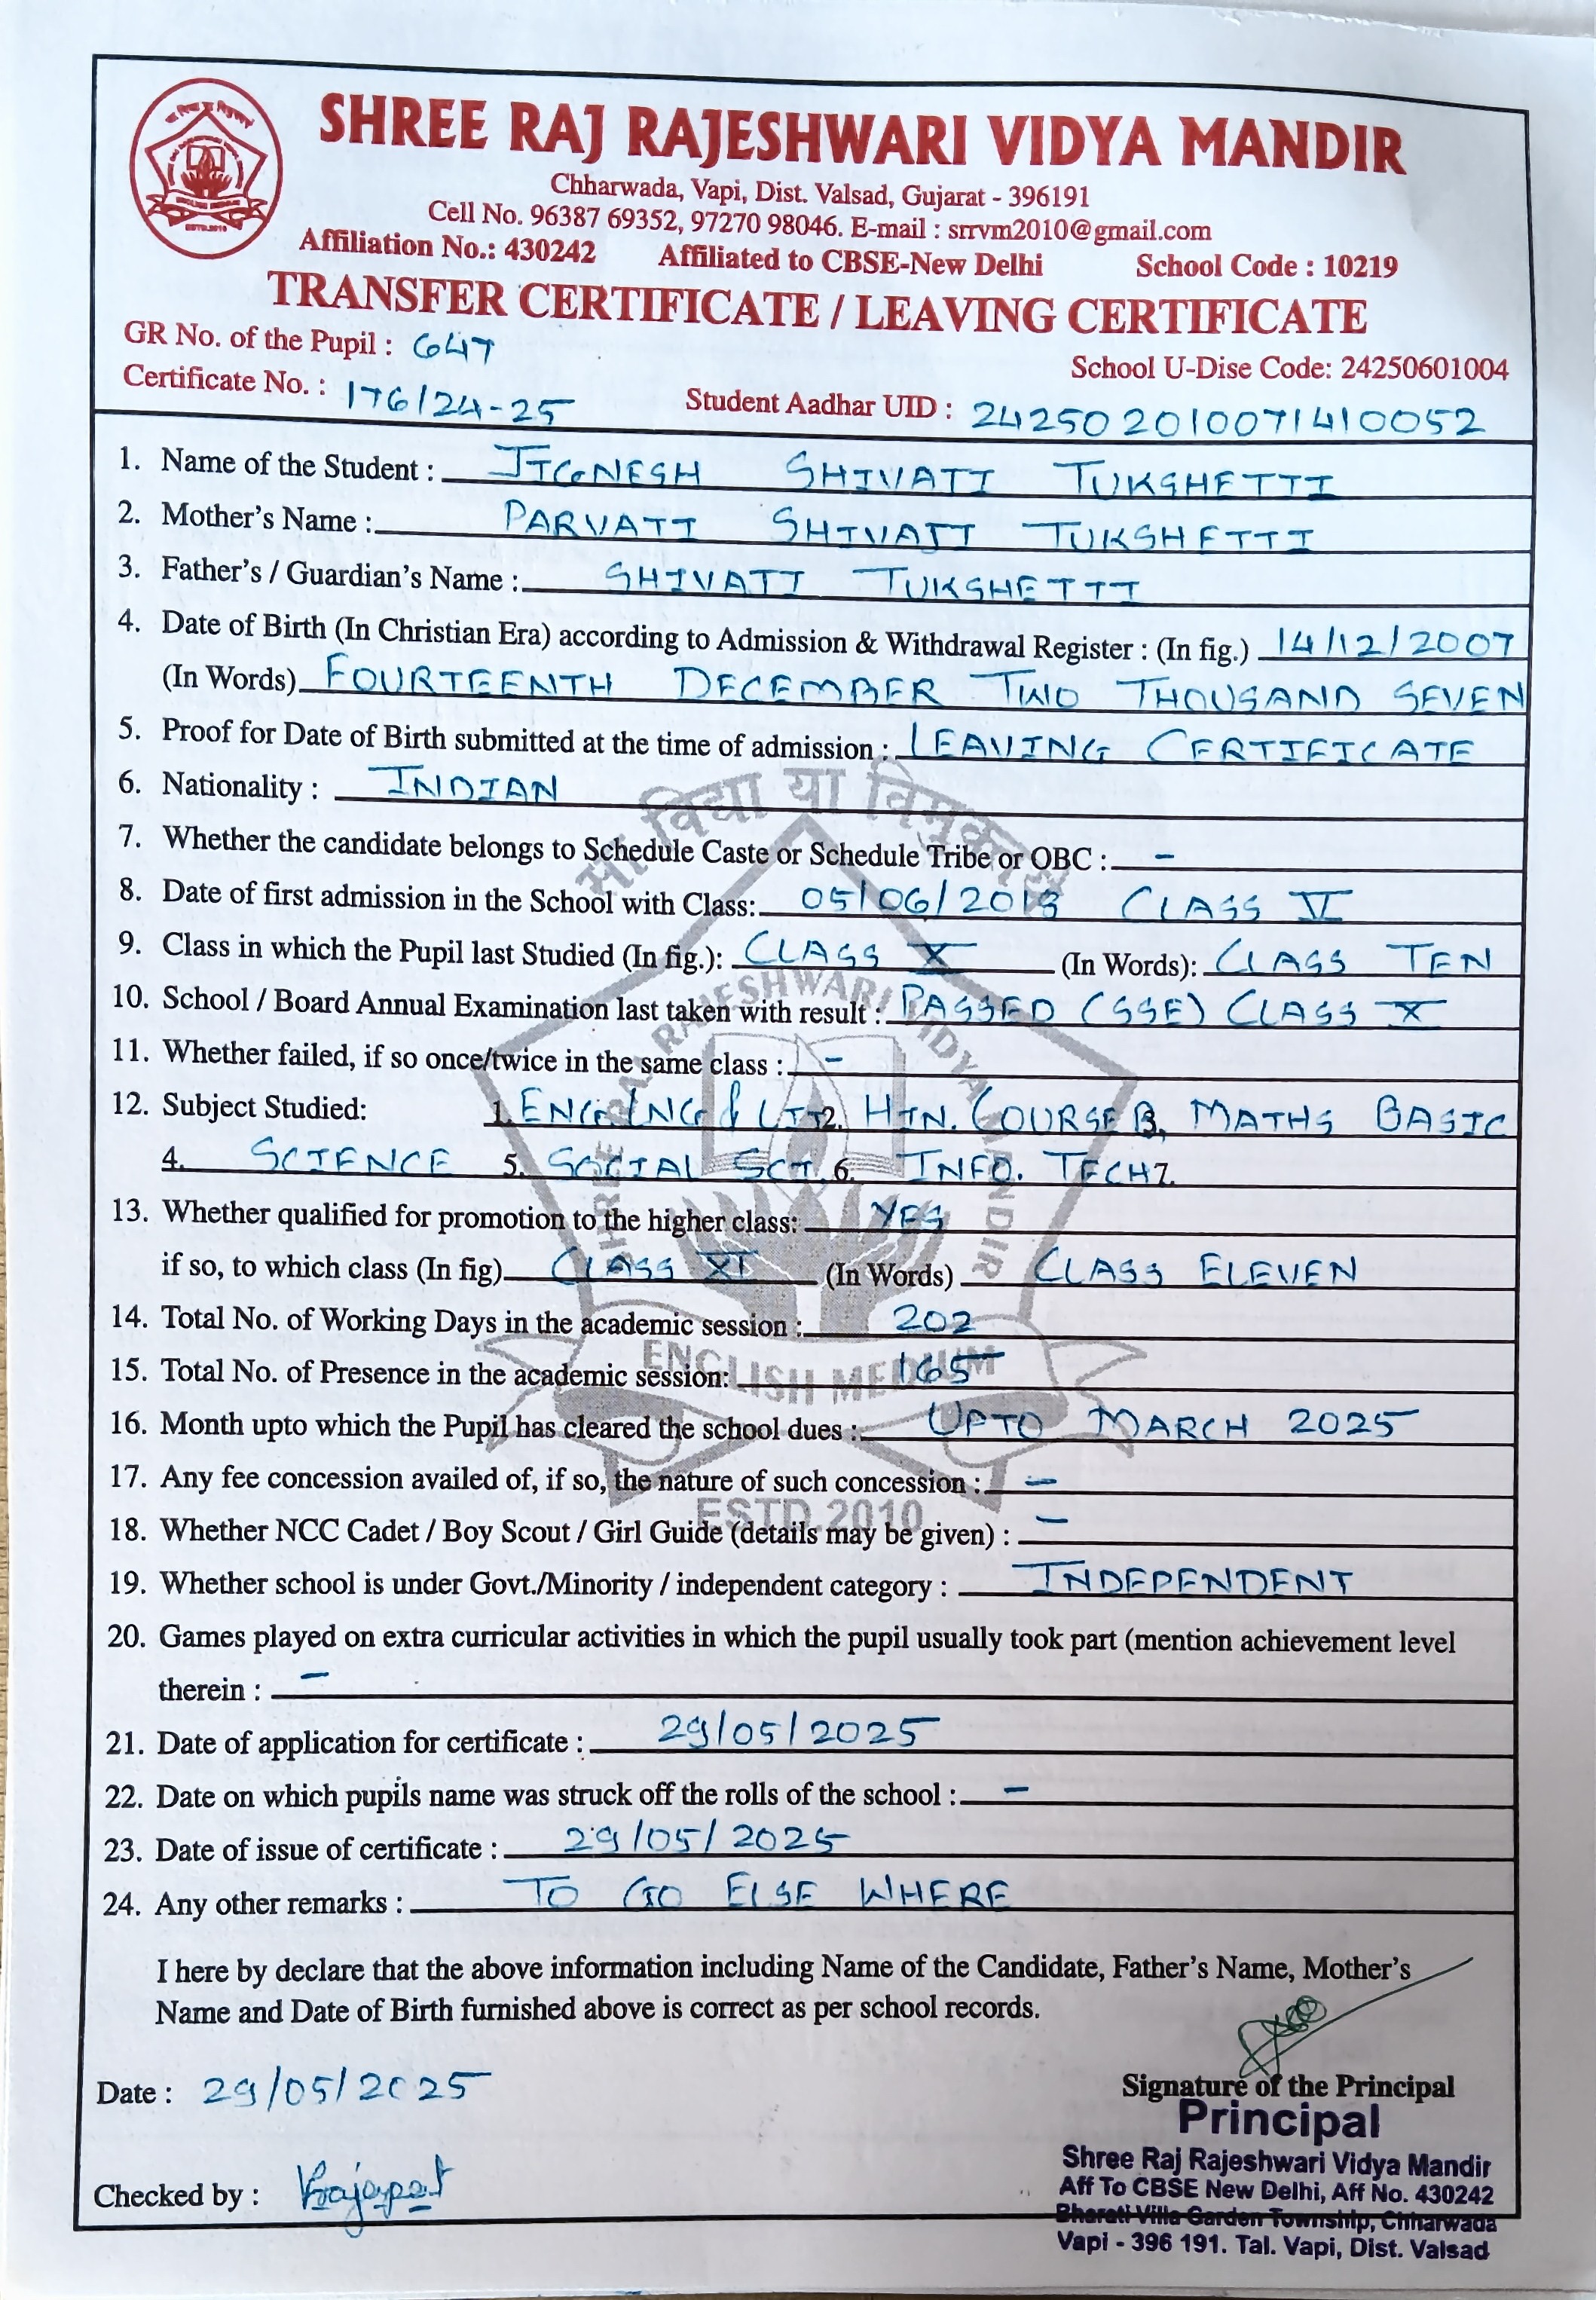 SHREE RAJ RAJESHWARI VIDYA MANDIR
Chharwada, Vapi, Dist. Valsad, Gujarat - 396191
Cell No. 96387 69352, 97270 98046. E-mail : srrvm2010@gmail.com
Affiliation No.: 430242 Affiliated to CBSE-New Delhi School Code : 10219
TRANSFER CERTIFICATE / LEAVING CERTIFICATE
GR No. of the Pupil : 647
School U-Dise Code: 24250601004
Certificate No. : 176/24-25 Student Aadhar UID : 242502010071410052
1. Name of the Student : JIGNESH SHIVAJI TUKSHETTI
2. Mother's Name : PARVATI SHIVAJI TUKSHETTI
3. Father's / Guardian's Name : SHIVAJI TUKSHETTI
4. Date of Birth (In Christian Era) according to Admission & Withdrawal Register : (In fig.) 14/12/2007
(In Words) FOURTEENTH DECEMBER TWO THOUSAND SEVEN
5. Proof for Date of Birth submitted at the time of admission : LEAVING CERTIFICATE
6. Nationality : INDIAN
7. Whether the candidate belongs to Schedule Caste or Schedule Tribe or OBC : -
8. Date of first admission in the School with Class: CLASS V
9. Class in which the Pupil last Studied (In fig.): CLASS X (In Words): CLASS TEN
10. School / Board Annual Examination last taken with result : PASSED (SSE) CLASS X
11. Whether failed, if so once/twice in the same class : -
12. Subject Studied: 1. ENG LNG & LIT 2. HIN. COURSE B 3. MATHS BASIC
4. SCIENCE 5. SOCIAL SCI. 6. INFO. TECH 7.
13. Whether qualified for promotion to the higher class: YES
if so, to which class (In fig) CLASS XI (In Words) CLASS ELEVEN
14. Total No. of Working Days in the academic session : 202
15. Total No. of Presence in the academic session: 165
16. Month upto which the Pupil has cleared the school dues : UPTO MARCH 2025
17. Any fee concession availed of, if so, the nature of such concession : -
18. Whether NCC Cadet / Boy Scout / Girl Guide (details may be given) : -
19. Whether school is under Govt./Minority / independent category : INDEPENDENT
20. Games played on extra curricular activities in which the pupil usually took part (mention achievement level
therein : -
21. Date of application for certificate : 29/05/2025
22. Date on which pupils name was struck off the rolls of the school : -
23. Date of issue of certificate : 29/05/2025
24. Any other remarks : TO GO ELSE WHERE
I here by declare that the above information including Name of the Candidate, Father's Name, Mother's
Name and Date of Birth furnished above is correct as per school records.
Date : 29/05/2025
Signature of the Principal
Principal
Shree Raj Rajeshwari Vidya Mandir
Checked by :
Aff To CBSE New Delhi, Aff No. 430242
Bharati Villa Garden Township, Chharwada
Vapi - 396 191. Tal. Vapi, Dist. Valsad
सा विद्या या विमुक्तये
SHREE RAJ RAJESHWARI VIDYA MANDIR
ENGLISH MEDIUM
ESTD.2010